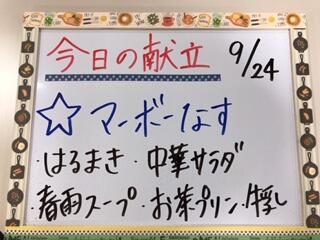 今日の献立 9/24
☆ マーボーなす
・はるまき ・中華サラダ
・春雨スープ ・お茶プリン ・牛乳